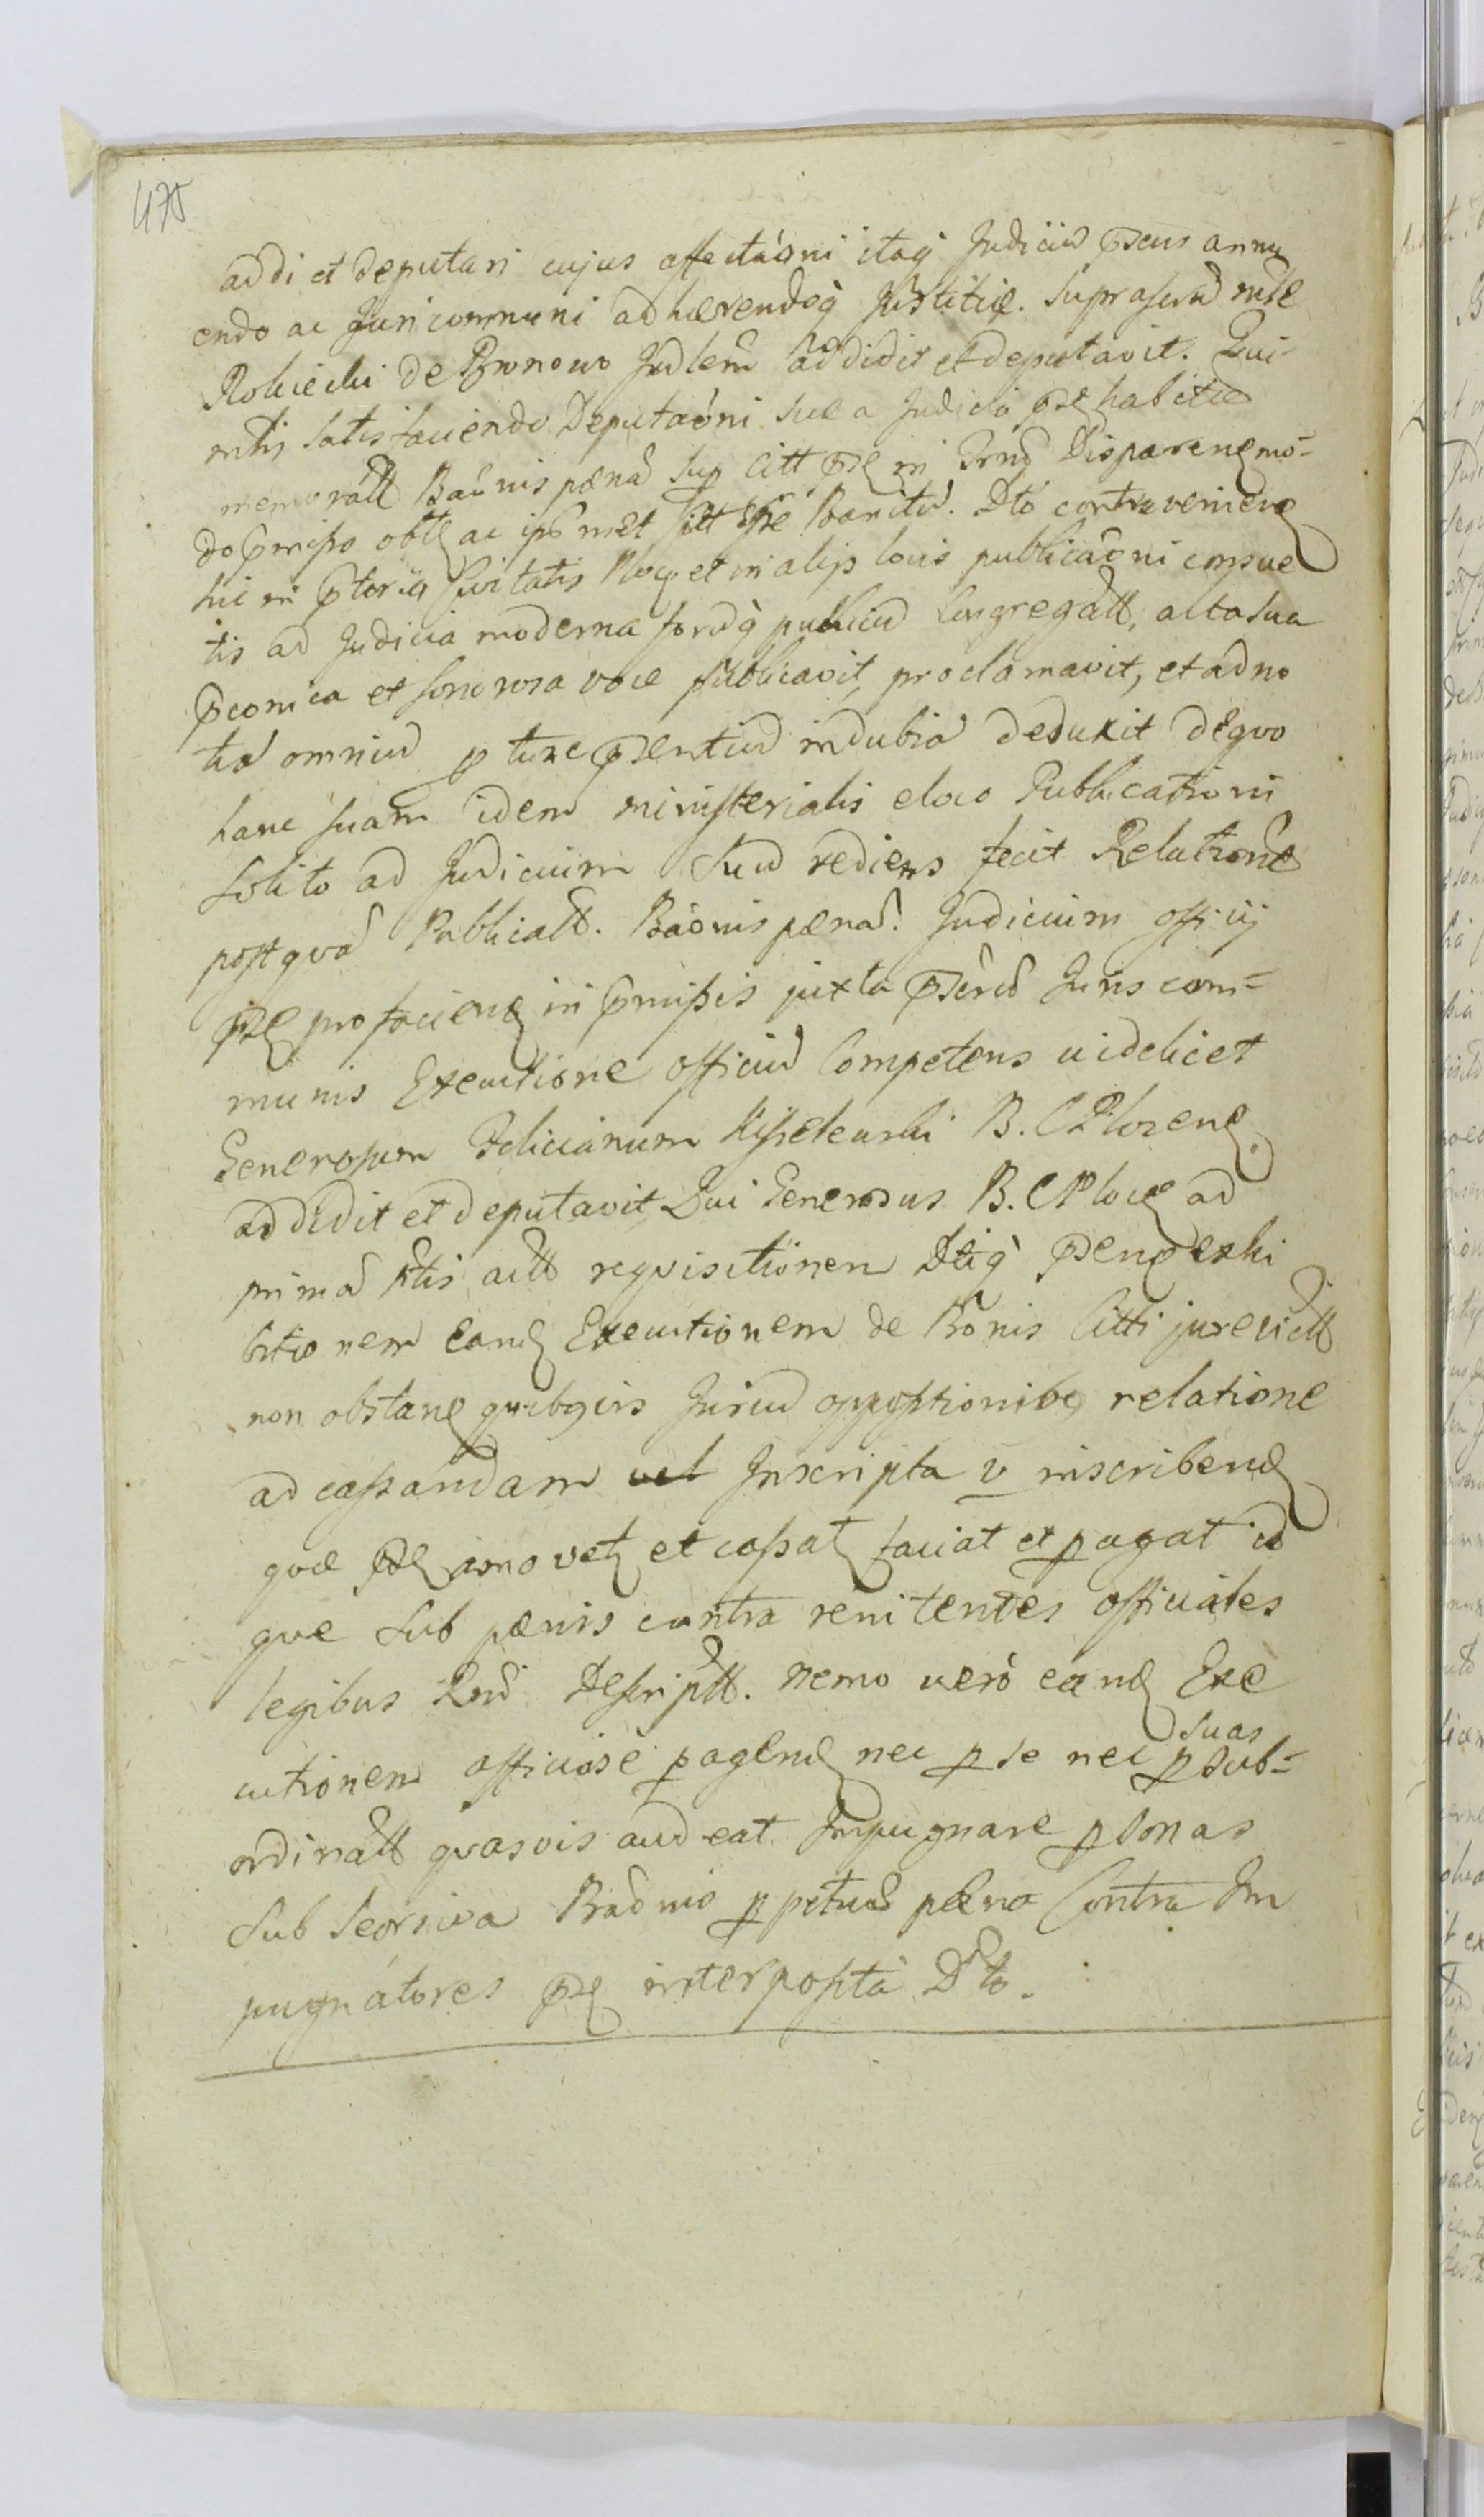 475
addi et deputari cujus affectaõni itaq Judiciũ pñs annu
endo ac Juri communi adhærendoq Justitiæ. Suprascrid mle
Rokicki de Judlem addidit et deputavit. Qui
mlis satisfaciendo Deputaõni suæ a Judicio pñt habitæ
memoratt Baõnis pœnã sup citt pñt in Trnõ Disparenẽ mo-
do pmisso obtẽ ac ipsmet esse Banitũ. Dto contravenienẽ
hic in ptorio Civitatis Ploc et in alijs locis publicaõni consue
tis ad Judicia moderna forũq publicũ Congregatt, alta sua
pconica et sonorosa voce publicavit, proclamavit, et ad no
tiã omniũ p tunc psentiũ indubiã deduxit de quo
hanc suam idem ministerialis eloco Publicationi
solito ad Judicium suũ rediens fecit Relationẽ
post quã Publicatt. Baõnis pœnã. Judicium officij
pñt pro facienẽ in pmissis juxta pscrũ Juris com-
munis Executione officiũ Competens videlicet
Generosum Felicianum Kisielewski B. C Plocenẽ
addidit et deputavit Qui Generosus B. C Plocẽ ad
primã ptis actt requisitionem Dtiq psenẽ exhi
bitionem eanẽ Executionem de Bonis Citti jurevictt
non obstanẽ quibqvis Juriũ oppositionibq relatione
ad cassandam vel Inscripta v inscribenẽ
quæ pñt amovetẽ et cassatẽ faciat et pagat id
que sub pœnis contra renitentes officiales
legibus Rnd Descriptt. nemo verò eanẽ Exe
cutionem officiosè pagenẽ nec p se nec p suas sub-
ordinatt quasvis audeat Impugnare psonas
sub seorsiva Baõnis ppetuæ pœna Contra Im
pugnatores pñt interposita Dto.